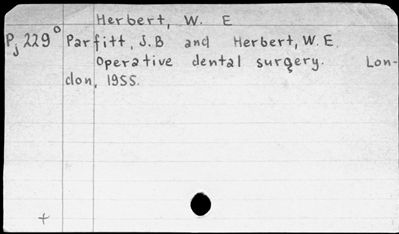 Herbert, W. E
Pj 229° Parfitt, J.B and Herbert, W.E.
Operative dental surgery. Lon-
don, 1955.
+